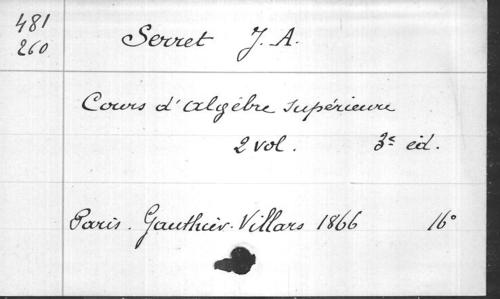 481 Serret J. A.
260
Cours d'algèbre supérieure
2 vol. 3e éd.
Paris. Gauthier-Villars 1866 16°